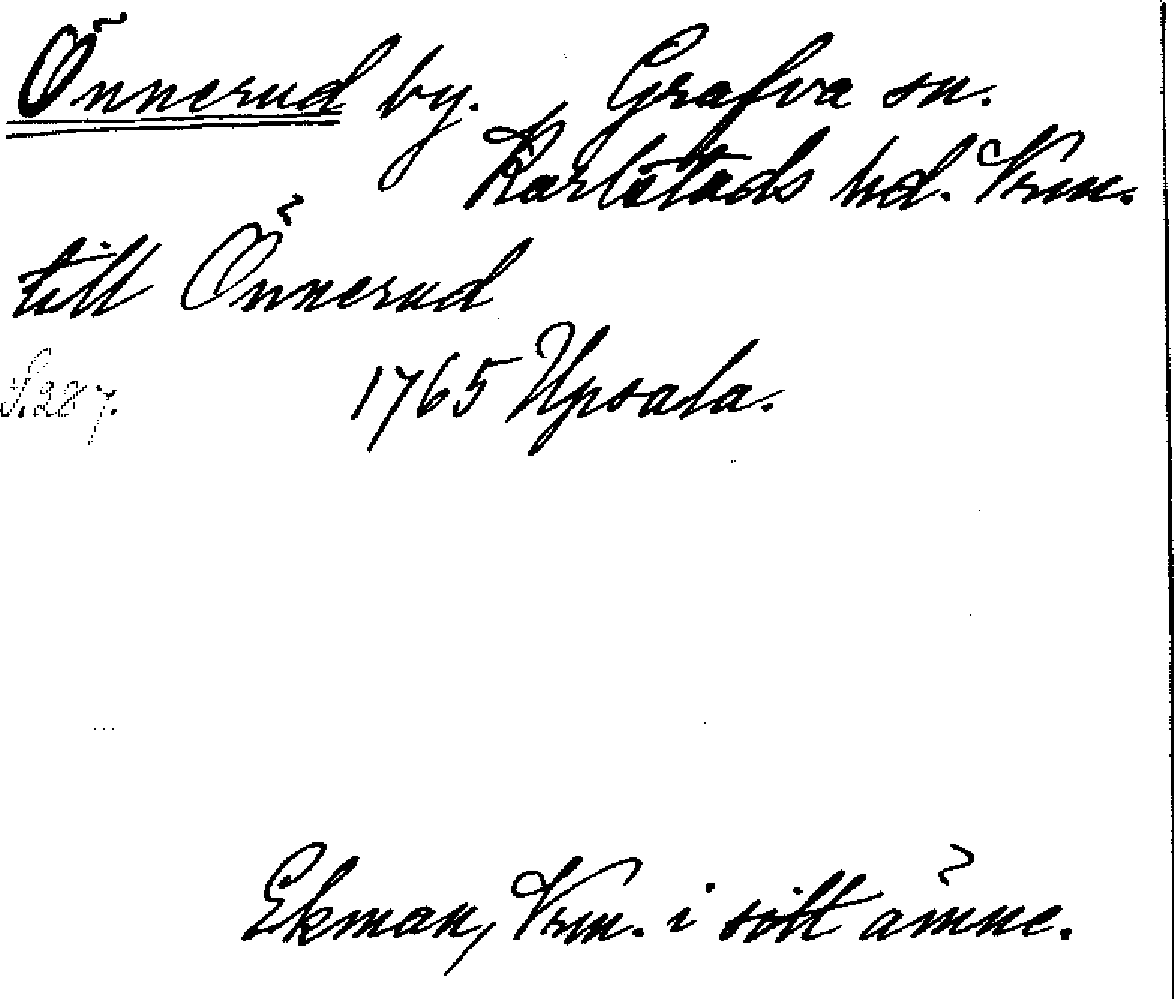 Önnerud by. Grafva sn.
Karlstads hd. Vrm.
till Önnerud
S. 287. 1765 Upsala.
Ekman, Vrm. i sitt ämne.